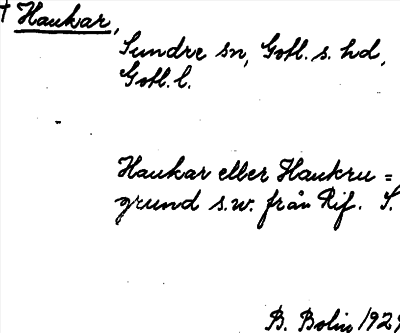 † Haukar,
Sundre sn, Gotl. s. hd,
Gotl. l.
Haukar eller Haukru=
grund s.w. från Rif. S.
B. Bolin 192